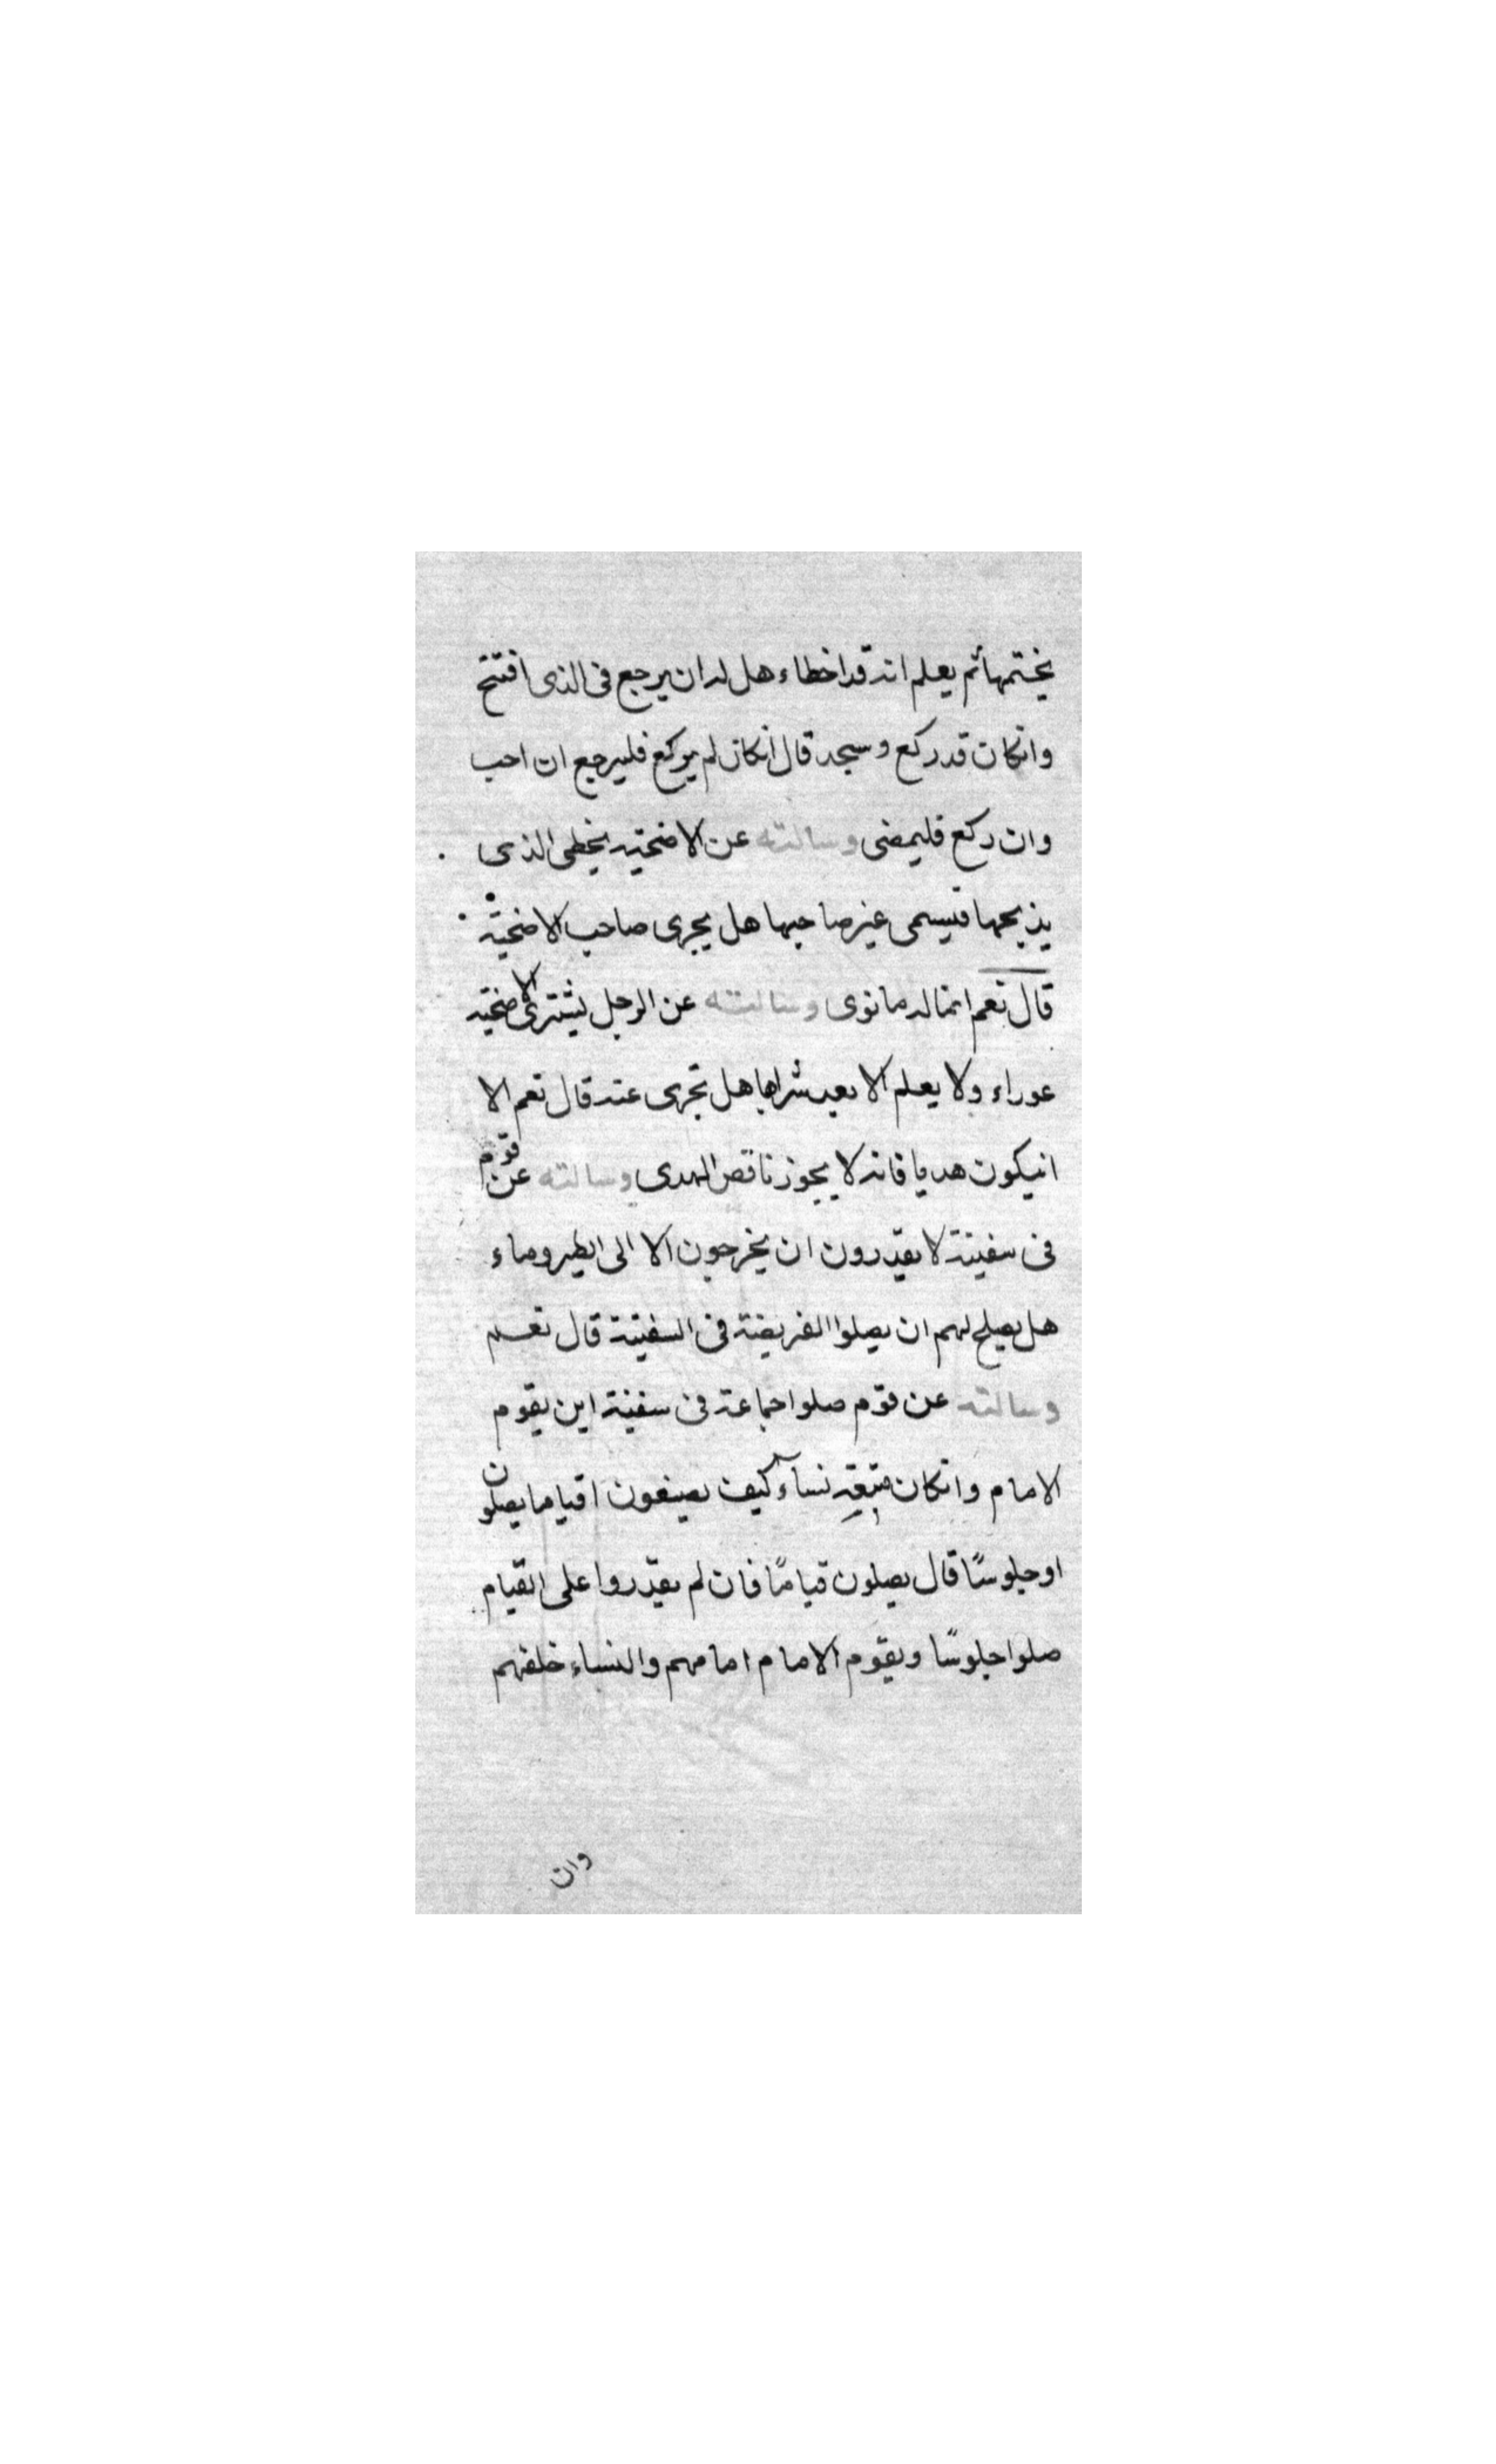 يختمها ثم يعلم انه قد اخطاء هل له ان يرجع في الذي افتتح
وانكان قد ركع وسجد قال انكان لم يركع فليرجع ان احب
وان ركع فليمضي وسالته عن الاضحيه يخطى الذى
يذبحها فيسمى غير صاحبها هل يجزى صاحب الاضحية
قال نعم انما له ما نوى وسالته عن الرجل يشترى الاضحيه
عوراء ولا يعلم الا بعد شراها هل تجزى عنه قال نعم الا
انيكون هديا فانه لا يجوز ناقص الهدى وسالته عن قوم
فى سفينة لا يقدرون ان يخرجون الا الى الطين وماء
هل يصلح لهم ان يصلوا الفريضة فى السفينة قال نعم
وسالته عن قوم صلوا جماعة فى سفينة اين يقوم
الامام وانكان معه نساء كيف يصنعون اقياما يصلون
او جلوسًا قال يصلون قيامًا فان لم يقدروا على القيام
صلوا جلوسًا ويقوم الامام امامهم والنساء خلفهم
وان